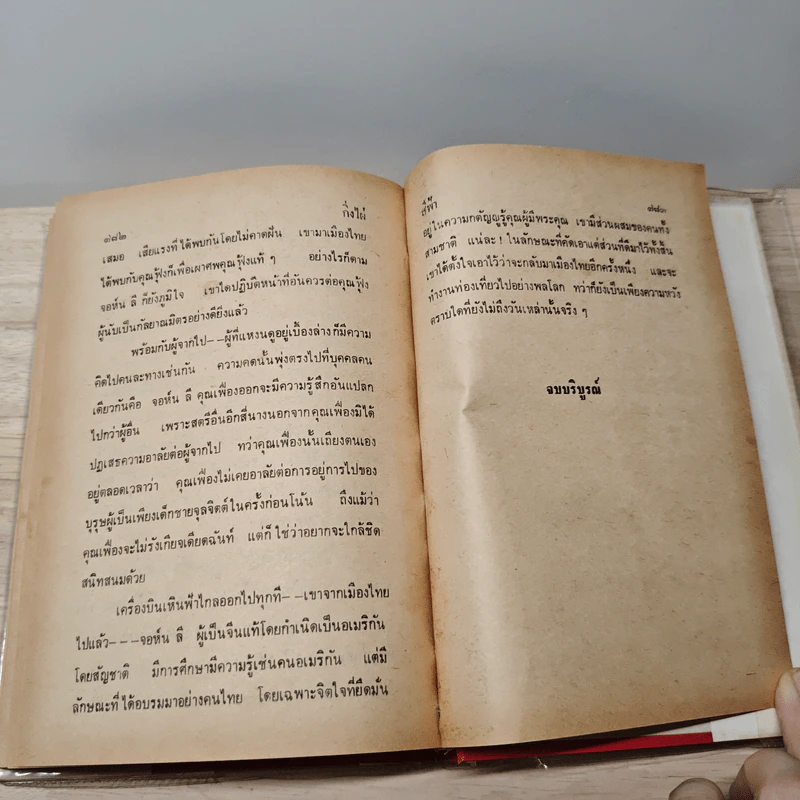 ๑๘๒
กิ่งไผ่
เสมอ เสียแรงที่ได้พบกันโดยไม่คาดฝัน เขามาเมืองไทย
ได้พบกับคุณฟุ้งก็เพื่อเผาศพคุณฟุ้งแท้ ๆ อย่างไรก็ตาม
จอห์น ลี ก็ยังภูมิใจ เขาได้ปฏิบัติหน้าที่อันควรต่อคุณฟุ้ง
ผู้นับเป็นกัลยาณมิตรอย่างดียิ่งแล้ว
พร้อมกับผู้จากไป--ผู้ที่แหงนดูอยู่เบื้องล่างก็มีความ
คิดไปคนละทางเช่นกัน ความคิดนั้นพุ่งตรงไปที่บุคคลคน
เดียวกันคือ จอห์น ลี คุณเฟื่องออกจะมีความรู้สึกอันแปลก
ไปกว่าผู้อื่น เพราะสตรีอื่นอีกสี่นางนอกจากคุณเฟื่องมิได้
ปฏิเสธความอาลัยต่อผู้จากไป ทว่าคุณเฟื่องนั้นเถียงตนเอง
อยู่ตลอดเวลาว่า คุณเฟื่องไม่เคยอาลัยต่อการอยู่การไปของ
บุรุษผู้เป็นเพียงเด็กชายจุลจิตต์ในครั้งก่อนโน้น ถึงแม้ว่า
คุณเฟื่องจะไม่รังเกียจเดียดฉันท์ แต่ก็ใช่ว่าอยากจะใกล้ชิด
สนิทสนมด้วย
เครื่องบินเหินฟ้าไกลออกไปทุกที--เขาจากเมืองไทย
ไปแล้ว---จอห์น ลี ผู้เป็นจีนแท้โดยกำเนิดเป็นอเมริกัน
โดยสัญชาติ มีการศึกษามีความรู้เช่นคนอเมริกัน แต่มี
ลักษณะที่ได้อบรมมาอย่างคนไทย โดยเฉพาะจิตใจที่ยึดมั่น
สีฟ้า
อยู่ในความกตัญญูรู้คุณผู้มีพระคุณ เขามีส่วนผสมของคนทั้ง
สามชาติ แน่ละ! ในลักษณะที่คัดเอาแต่ส่วนที่ดีมาไว้ทั้งสิ้น
เขาได้ตั้งใจเอาไว้ว่าจะกลับมาเมืองไทยอีกครั้งหนึ่ง และจะ
ทำงานท่องเที่ยวไปอย่างพลโลก ทว่าก็ยังเป็นเพียงความหวัง
ตราบใดที่ยังไม่ถึงวันเหล่านั้นจริง ๆ
จบบริบูรณ์